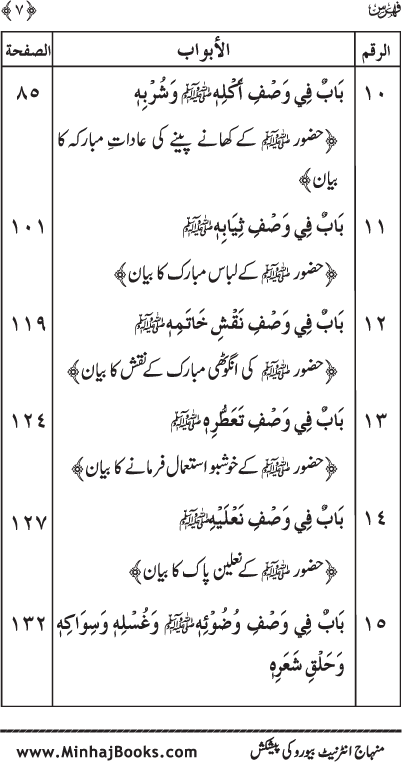 فہرس ﴿٧﴾
الرقم الأبواب الصفحة
١٠ بَابٌ فِي وَصْفِ أَکْلِهٖ ﷺ وَشُرْبِهٖ ٨٥
﴿حضور ﷺ کے کھانے پینے کی عاداتِ مبارکہ کا
بیان﴾
١١ بَابٌ فِي وَصْفِ ثِيَابِهٖ ﷺ ١٠١
﴿حضور ﷺ کے لباس مبارک کا بیان﴾
١٢ بَابٌ فِي وَصْفِ نَقْشِ خَاتَمِهٖ ﷺ ١١٩
﴿حضور ﷺ کی انگوٹھی مبارک کے نقش کا بیان﴾
١٣ بَابٌ فِي وَصْفِ تَعَطُّرِهٖ ﷺ ١٢٤
﴿حضور ﷺ کے خوشبو استعمال فرمانے کا بیان﴾
١٤ بَابٌ فِي وَصْفِ نَعْلَيْهِ ﷺ ١٢٧
﴿حضور ﷺ کے نعلین پاک کا بیان﴾
١٥ بَابٌ فِي وَصْفِ وُضُوْئِهٖ ﷺ وَغُسْلِهٖ وَسِوَاکِهٖ ١٣٢
وَحَلْقِ شَعَرِهٖ
منہاج انٹرنیٹ بیورو کی پیشکش www.MinhajBooks.com